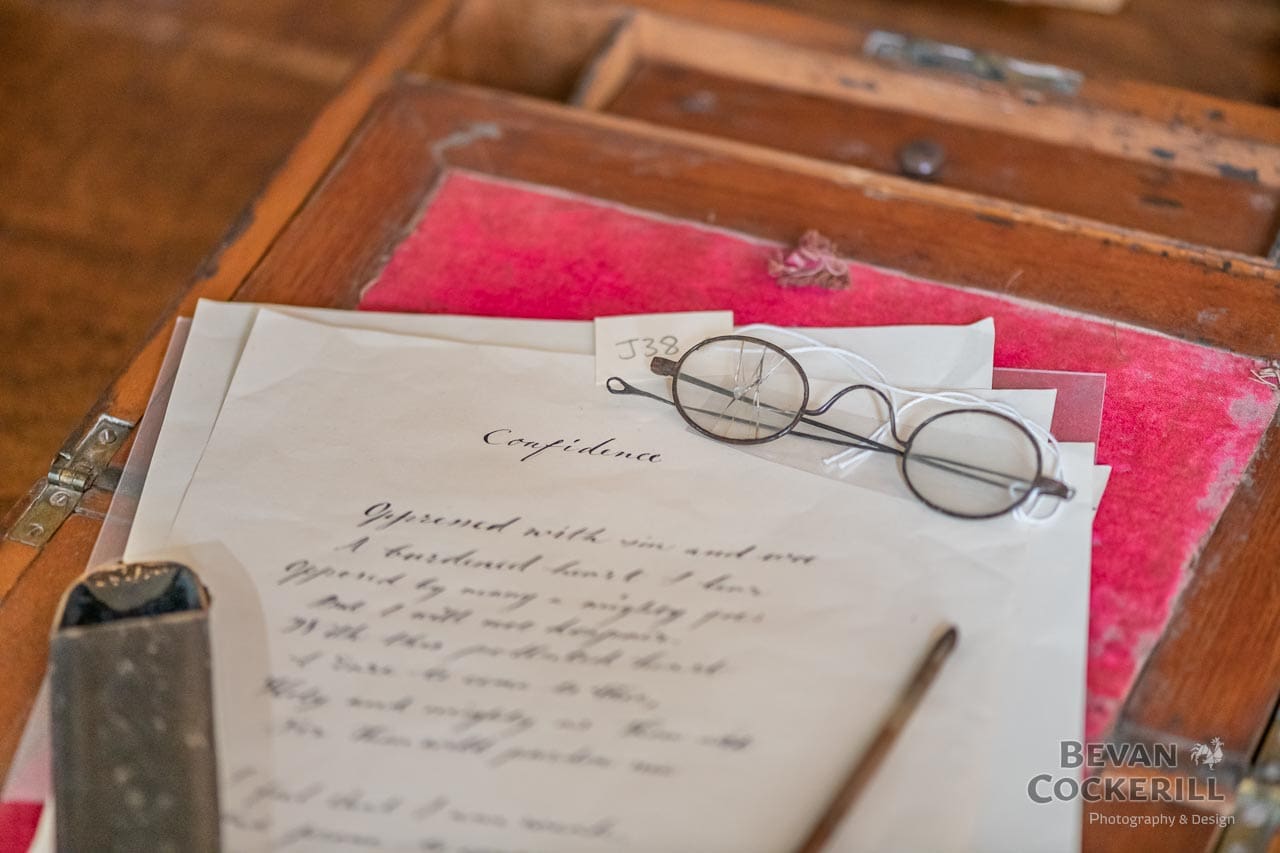 J38
Confidence
Oppressed with sin and woe
A burdened heart I bear
Opposed by many a mighty foe
But I will not despair.
With this polluted heart
I dare to come to thee,
Holy and mighty as Thou art
For thou wilt pardon me
I feel that I am
BEVAN
COCKERILL
Photography & Design